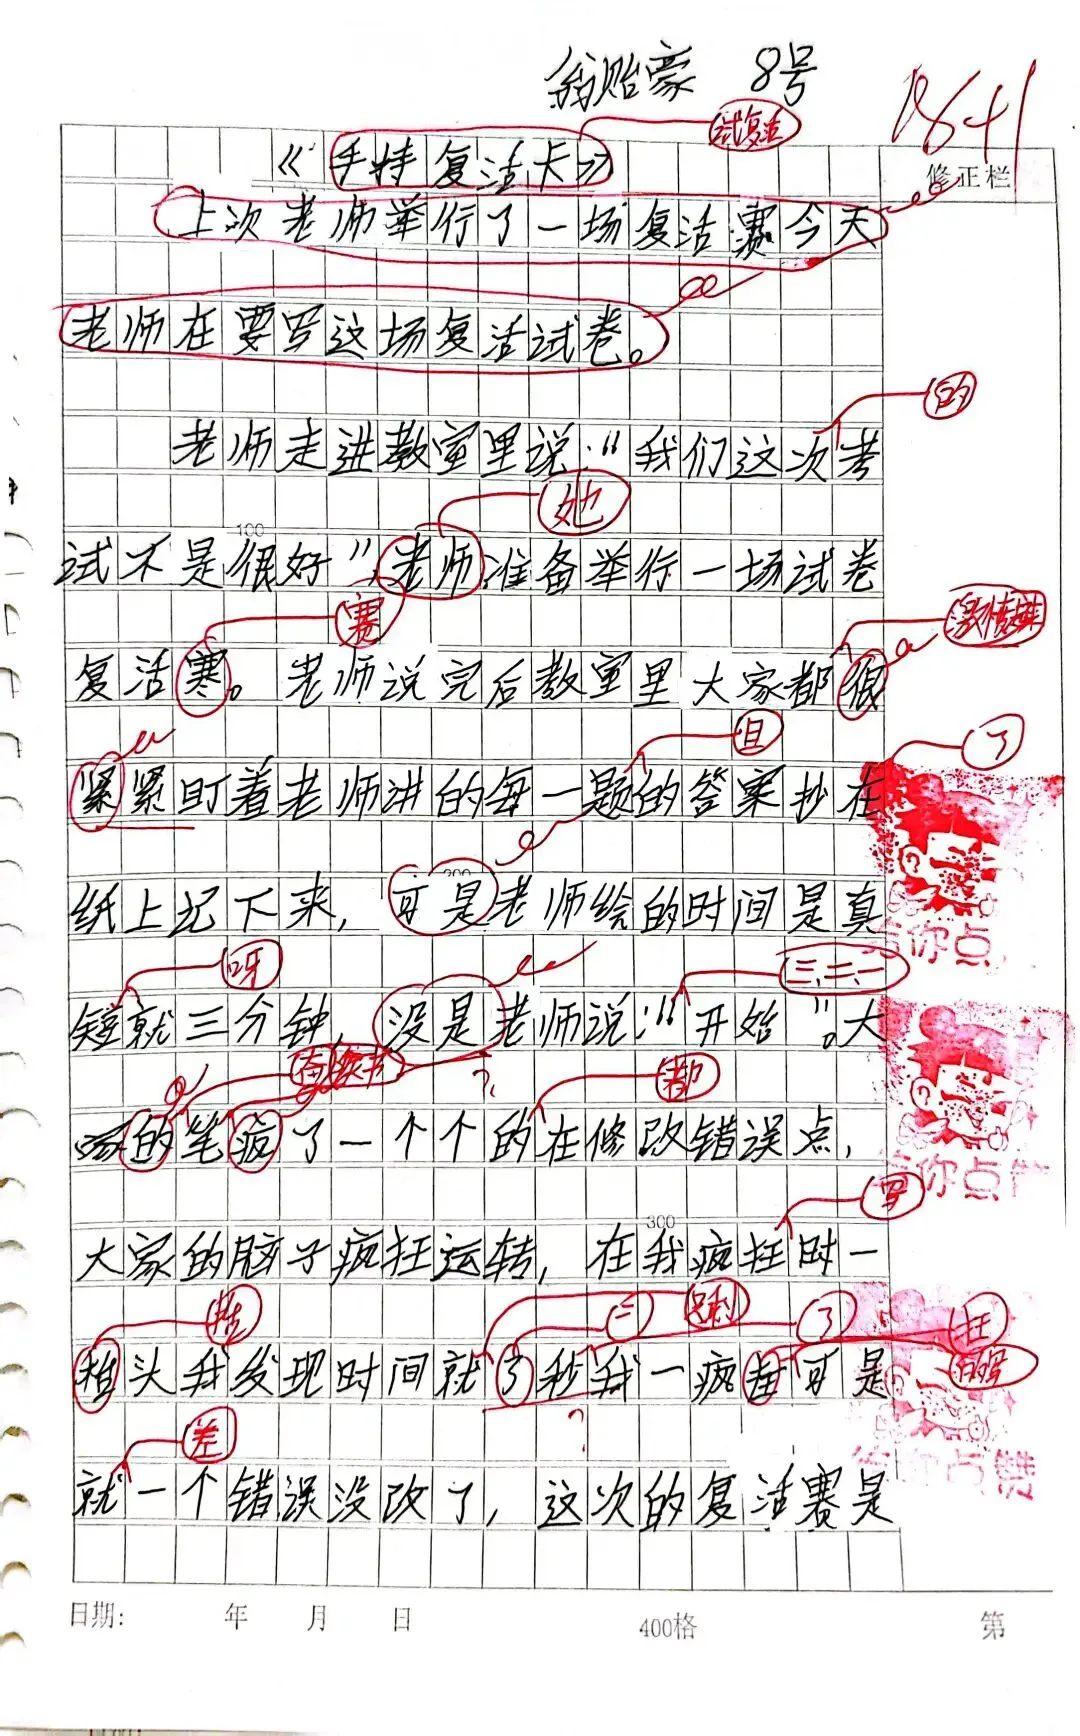 翁贻豪 8号
18+1
试复活
《手持复活卡》
修正栏
上次老师举行了一场复活赛今天
老师在要写这场复活试卷。
的
老师走进教室里说:“我们这次考
她
100
试不是很好”,老师准备举行一场试卷
赛
复活寒。老师说完后教室里大家都很
且
了
紧紧盯着老师讲的每一题的答案抄在
200
纸上记下来,可是老师给的时间是真
给你点
呀
三,二,一
短就三分钟,没是老师说:“开始”。大
都
家的笔疯了一个个的在修改错误点,
给你点
写
300
大家的脑子疯狂运转,在我疯狂时一
抬
二
只剩
了
狂
抬头我发现时间就了秒我一疯 可是
差
给你点赞
就一个错误没改了,这次的复活赛是
日期: 年 月 日
400格
第